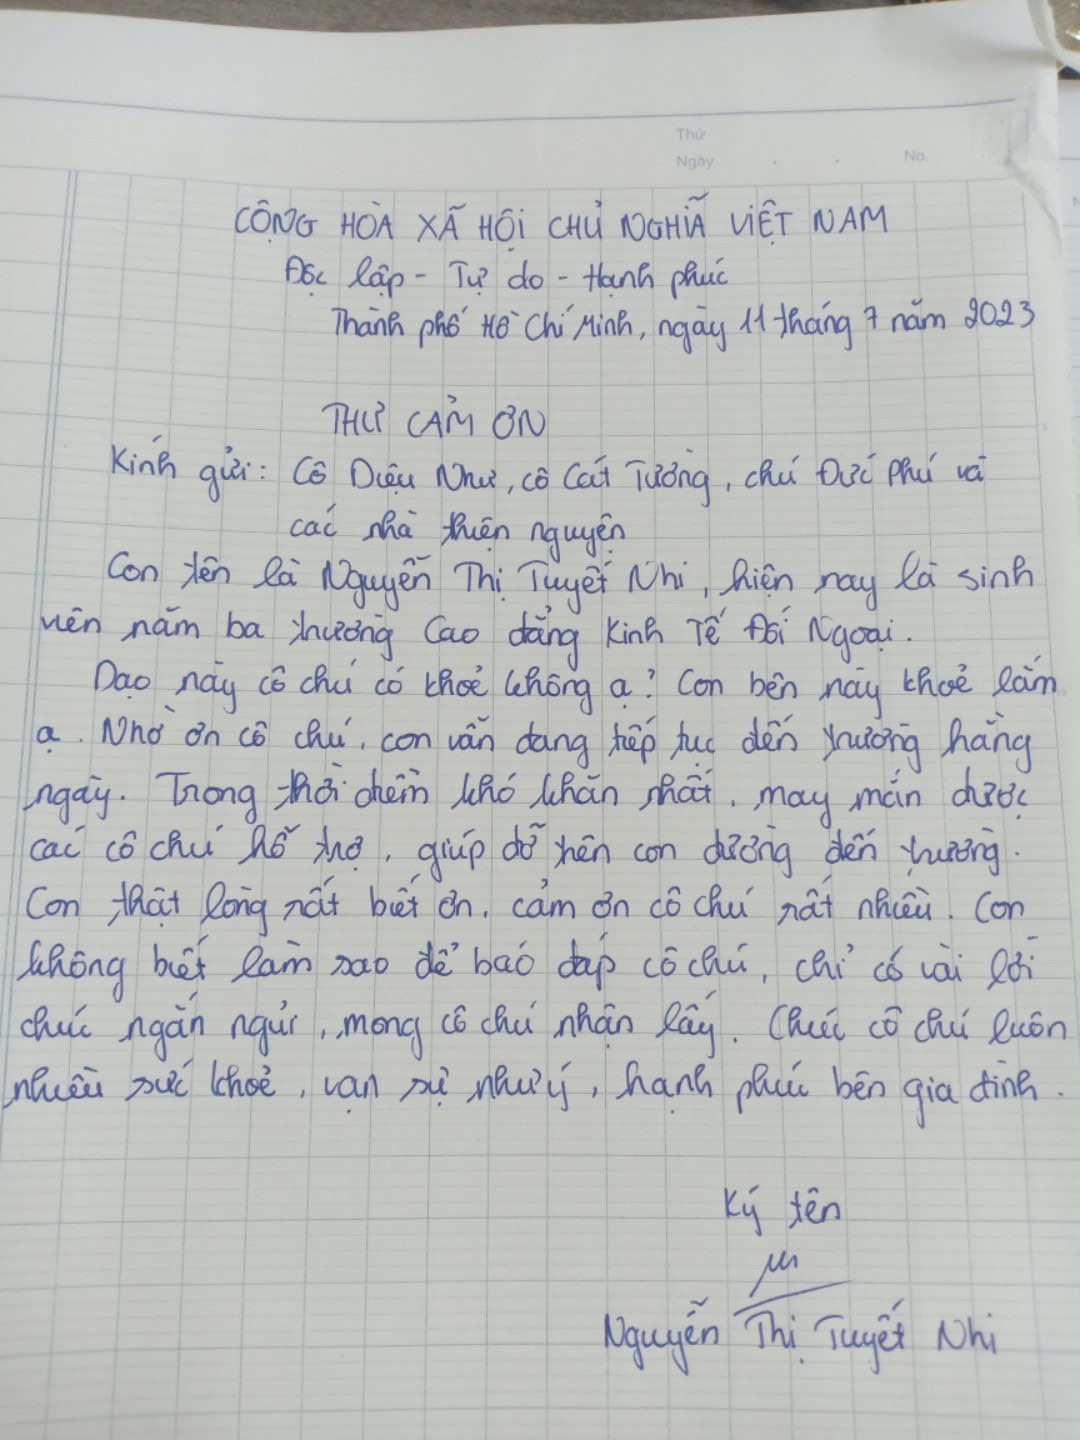 Thứ
Ngày . . No.
CỘNG HÒA XÃ HỘI CHỦ NGHĨA VIỆT NAM
Độc lập - Tự do - Hạnh phúc
Thành phố Hồ Chí Minh, ngày 11 tháng 7 năm 2023
THƯ CẢM ƠN
Kính gửi: Cô Diệu Như, cô Cát Tường, chú Đức Phú và
các nhà thiện nguyện
Con tên là Nguyễn Thị Tuyết Nhi, hiện nay là sinh
viên năm ba trường Cao đẳng Kinh Tế Đối Ngoại.
Dạo này cô chú có khoẻ không ạ? Con bên này khoẻ lắm
ạ. Nhờ ơn cô chú, con vẫn đang tiếp tục đến trường hằng
ngày. Trong thời điểm khó khăn nhất, may mắn được
các cô chú hỗ trợ, giúp đỡ trên con đường đến trường.
Con thật lòng rất biết ơn, cảm ơn cô chú rất nhiều. Con
không biết làm sao để báo đáp cô chú, chỉ có vài lời
chúc ngắn ngủi, mong cô chú nhận lấy. Chúc cô chú luôn
nhiều sức khoẻ, vạn sự như ý, hạnh phúc bên gia đình.
Ký tên
Nguyễn Thị Tuyết Nhi